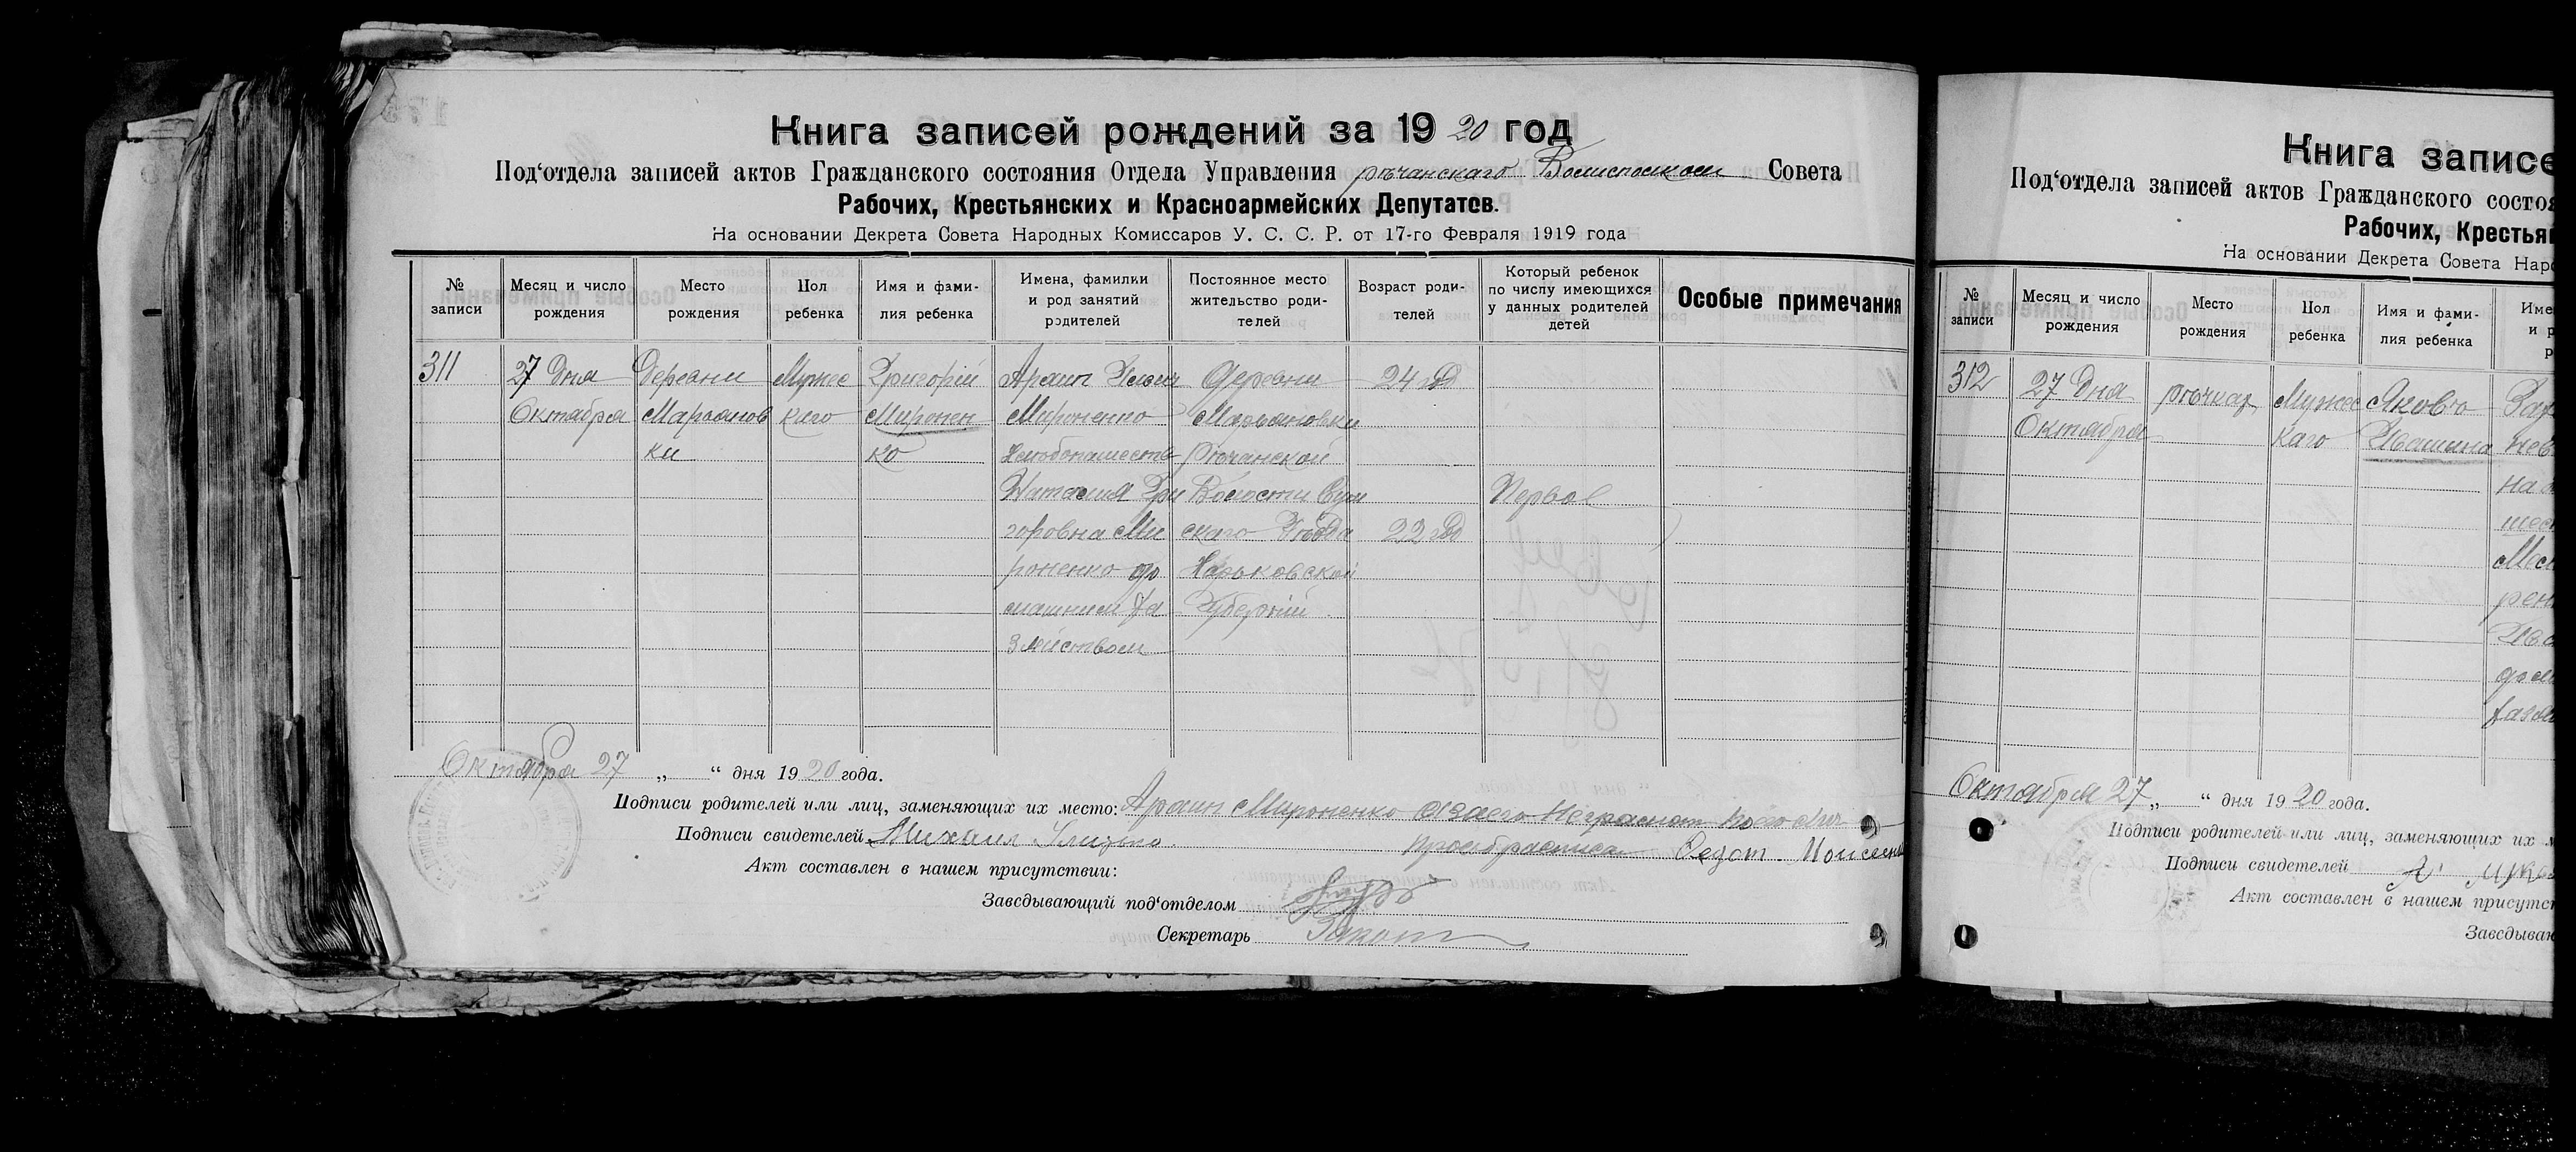 Книга записей рождений за 1920 год
Под‘отдела записей актов Гражданского состояния Отдела Управления речанскаго Волисполком Совета
Рабочих, Крестьянских и Красноармейских Депутатов.
На основании Декрета Совета Народных Комиссаров У. С. С. Р. от 17-го Февраля 1919 года
№ записи
Месяц и число рождения
Место рождения
Пол ребенка
Имя и фами-лия ребенка
Имена, фамилки и род занятий родителей
Постоянное место жительство роди-телей
Возраст роди-телей
Который ребенок по числу имеющихся у данных родителей детей
Особые примечания
311
27 Дня
Октября
Деревни
Марьянов
ки
Мужес
каго
Григорий
Миронен
ко
Мироненко
Хлебопашеств
Наталия Гри
горовна Ми
роненко до
машним ха
зяйством
Деревни
Марьяновки
Речанской
Волости Сум
скаго Уезда
Харьковской
Губерний
24 год
22 год
Первое
Октября 27 „ “ дня 1920 года.
Подписи родителей или лиц, заменяющих их место: Мироненко неграмот
Подписи свидетелей Михаил
Акт составлен в нашем присутствии:
Завсдывающий под‘отделом
Секретарь
Книга записе
Под‘отдела записей актов Гражданского состоя
Рабочих, Крестьян
На основании Декрета Совета Наро
№ записи
Месяц и число рождения
Место рождения
Пол ребенка
Имя и фами-лия ребенка
Име
и р
р
312
27 Дня
Октября
речках
Мужес
каго
Яковъ
Ивашина
на
Октября 27 „ “ дня 1920 года.
Подписи родителей или лиц, заменяющих их м
Подписи свидетелей
Акт составлен в нашем присутст
Завсдыван